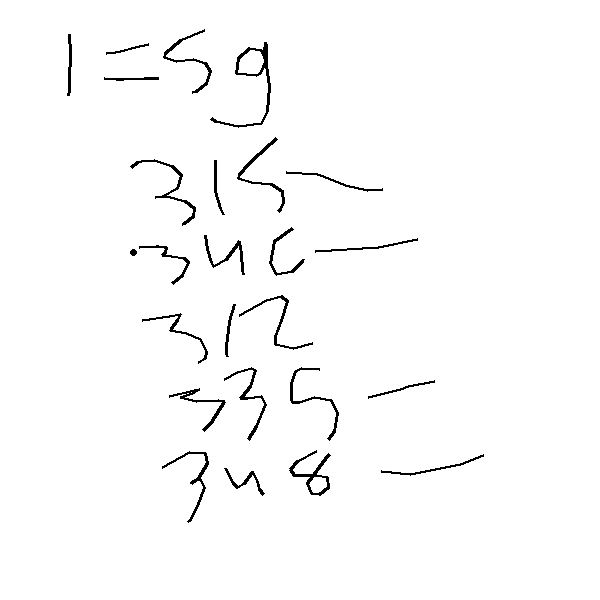 1 = 5g
315 —
340 —
312
335 —
348 —